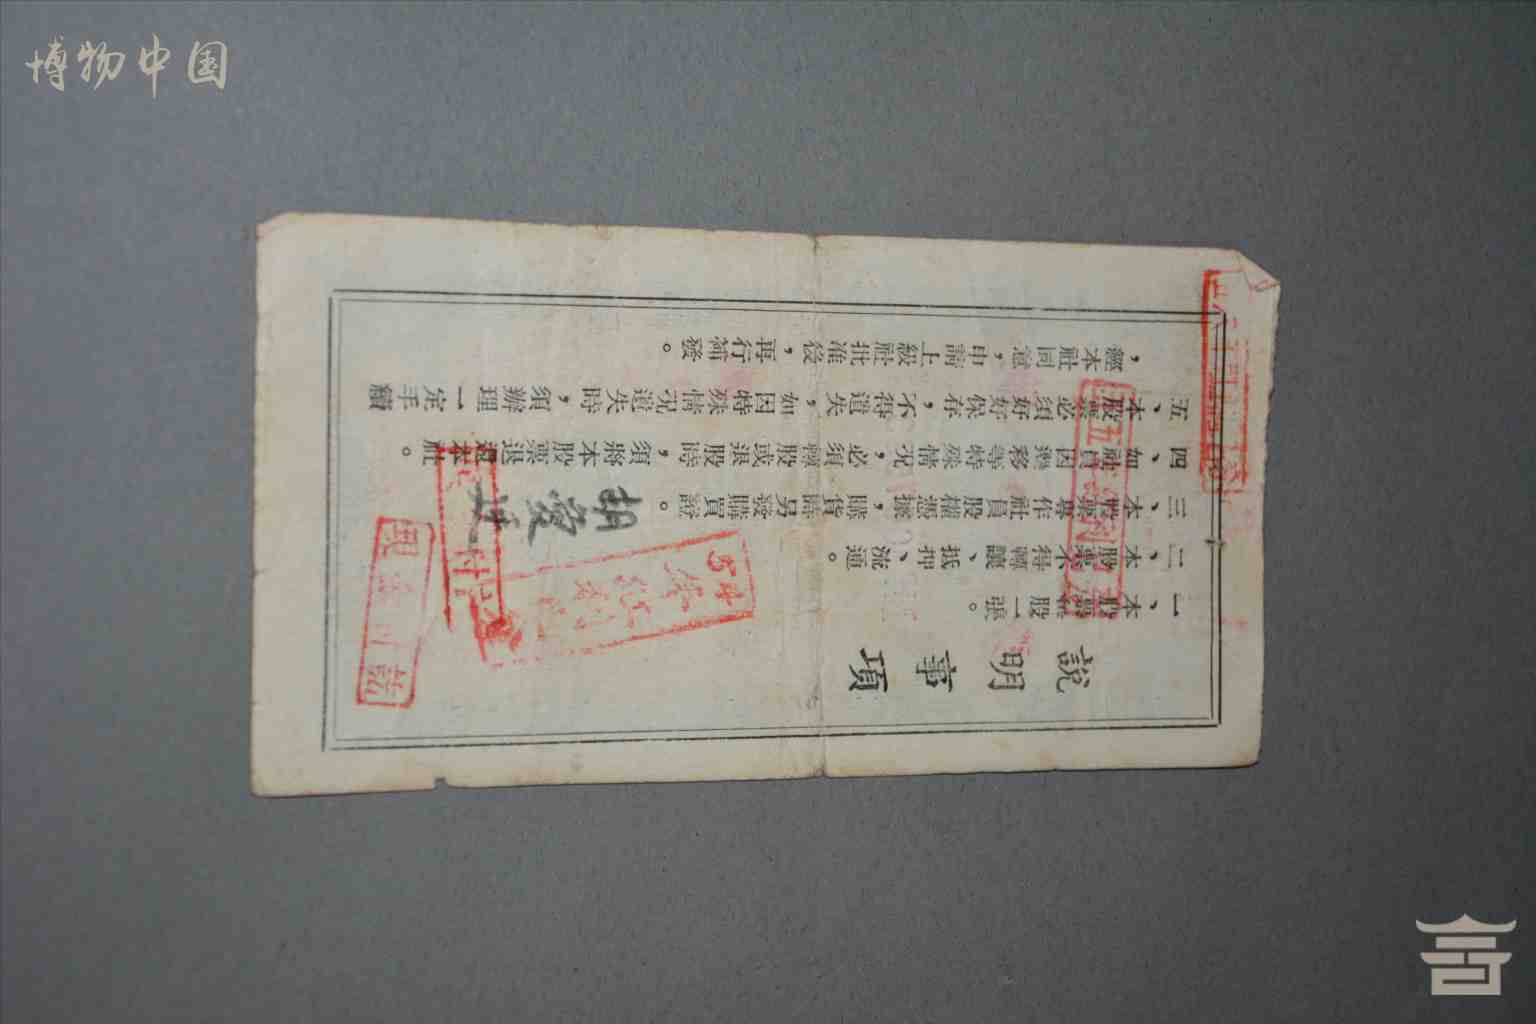 博物中国
說明事項
一、本股票每股一張。
二、本股票不得轉讓、抵押、流通。
三、本股票專作社員股權憑據,購貨時另發購買證。
四、如社員因遷移等特殊情況,必須轉股或退股時,須將本股票退還本社。
五、本股票必須好好保存,不得遺失,如因特殊情況遺失時,須辦理一定手續
,經本社同意,申請上級社批准後,再行補發。
胡